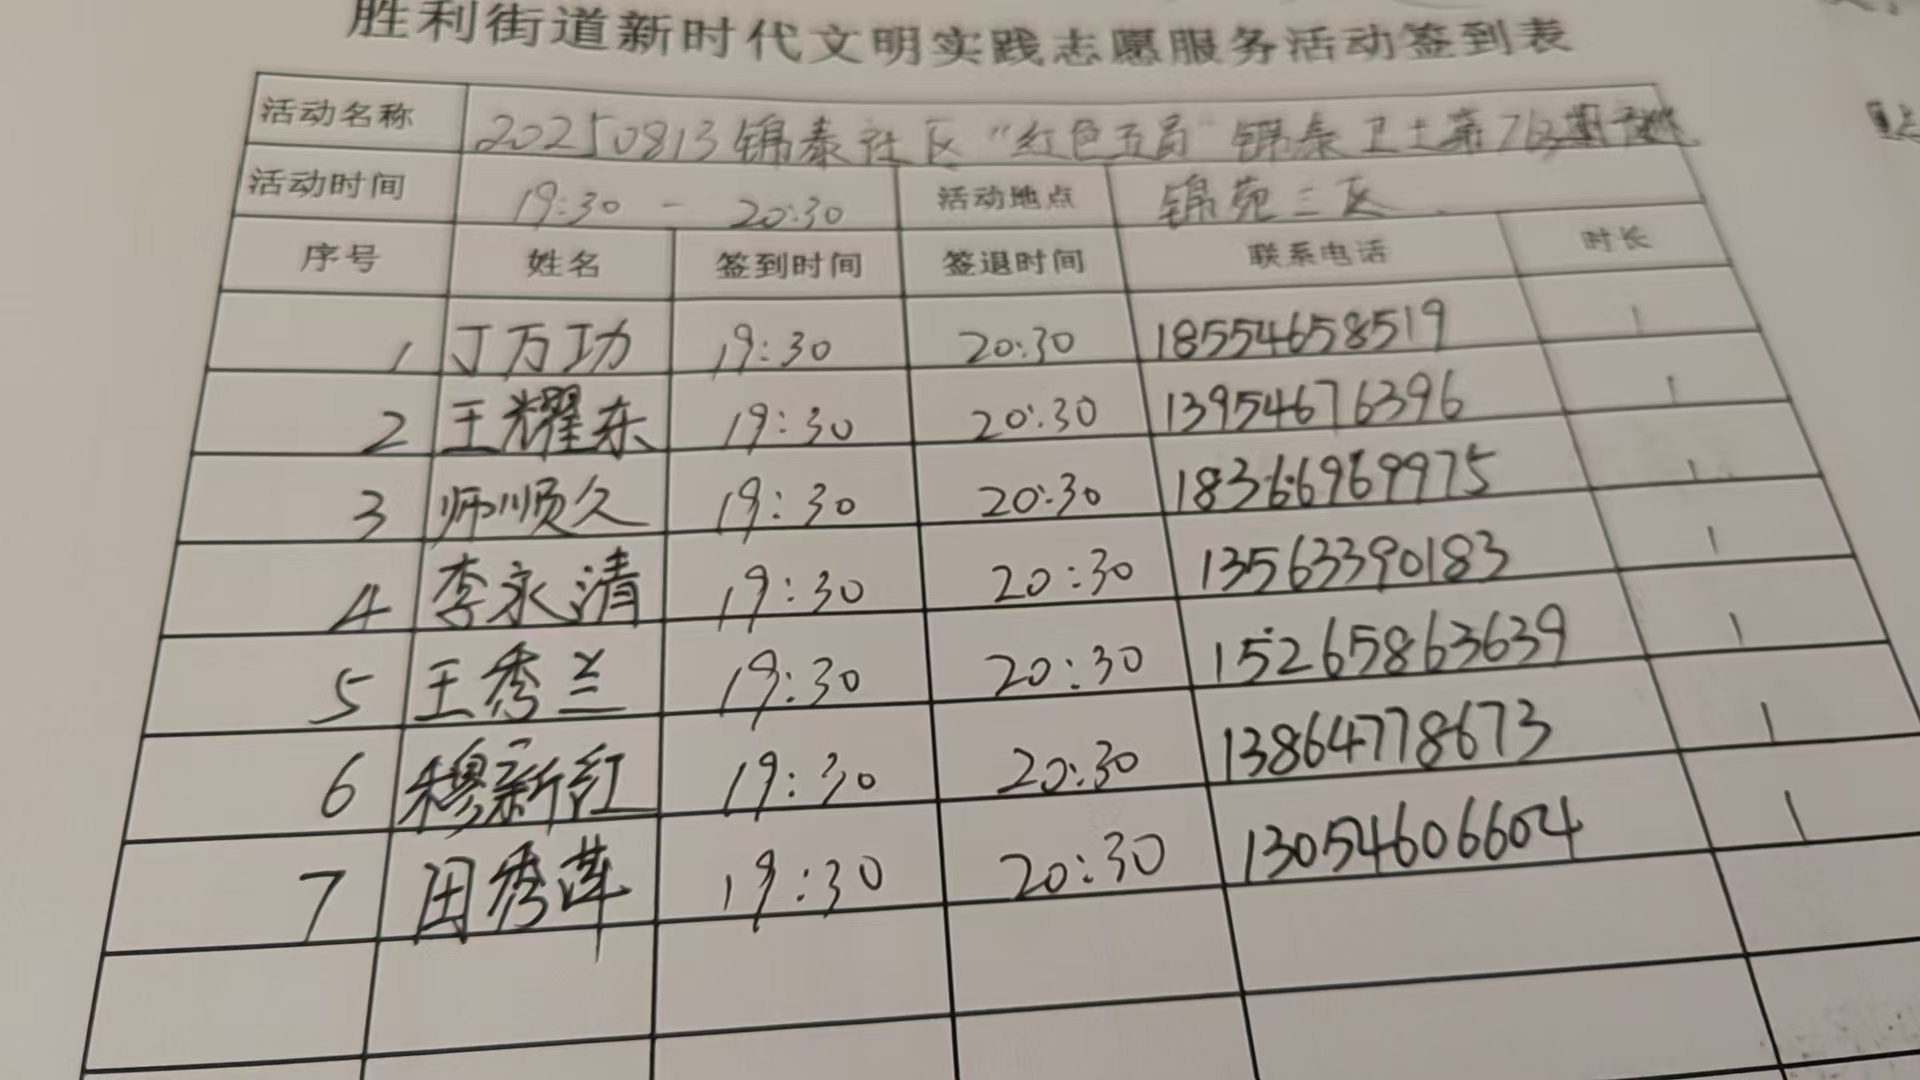 胜利街道新时代文明实践志愿服务活动签到表
活动名称 20250813锦泰社区“红色五员”锦泰卫士第76期
活动时间 19:30 - 20:30 活动地点 锦苑三区
序号 姓名 签到时间 签退时间 联系电话 时长
1 丁万功 19:30 20:30 18554658519 1
2 王耀东 19:30 20:30 13954676396 1
3 师顺久 19:30 20:30 18366969975 1
4 李永清 19:30 20:30 13563390183 1
5 王秀兰 19:30 20:30 15265863639 1
6 穆新红 19:30 20:30 13864778673 1
7 田秀莲 19:30 20:30 13054606604 1